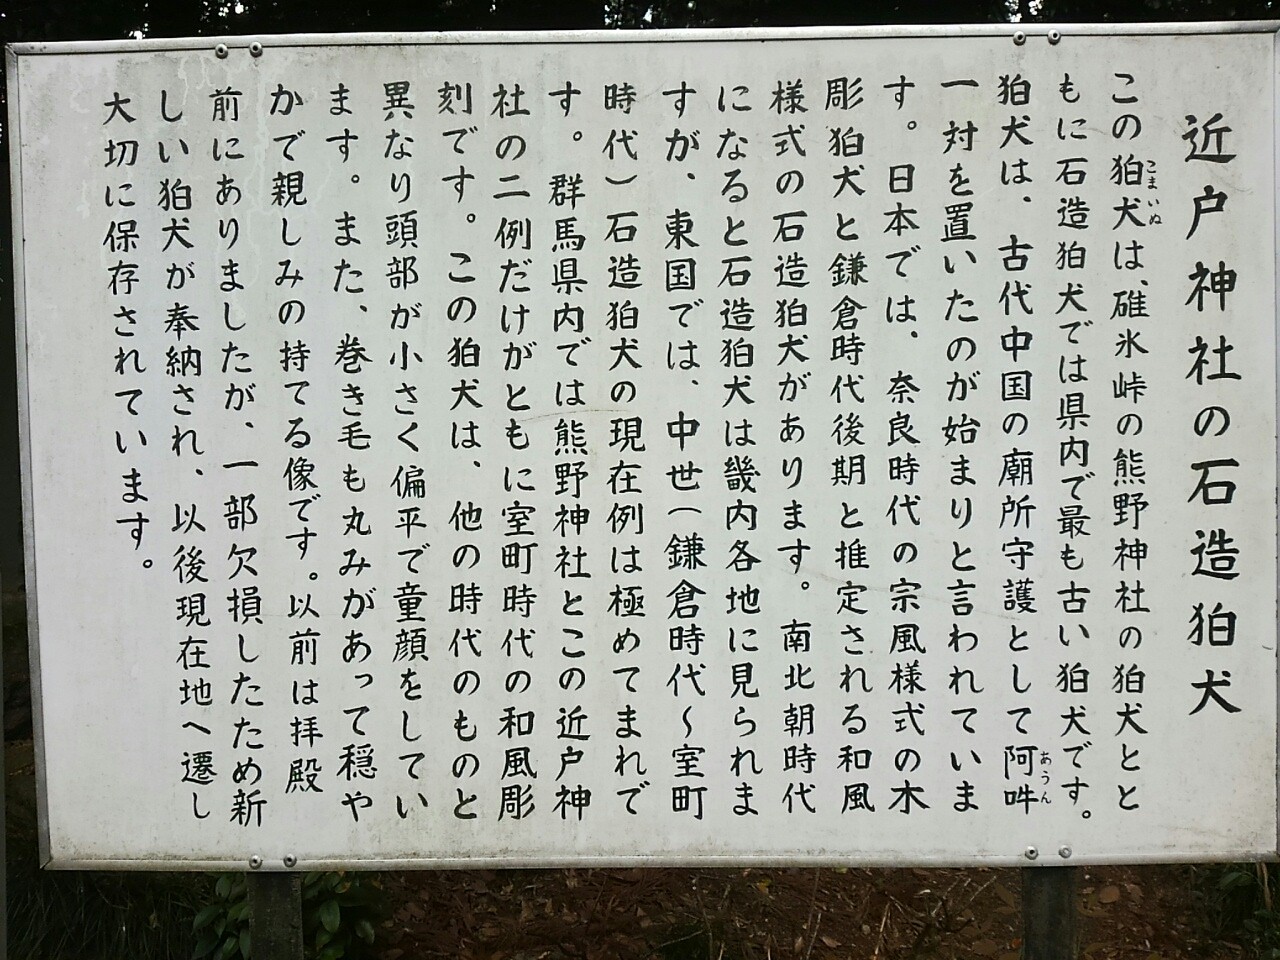 近戸神社の石造狛犬
この狛犬は、碓氷峠の熊野神社の狛犬とと
こまいぬ
もに石造狛犬では県内で最も古い狛犬です。
狛犬は、古代中国の廟所守護として阿吽
あうん
一対を置いたのが始まりと言われていま
す。日本では、奈良時代の宗風様式の木
彫狛犬と鎌倉時代後期と推定される和風
様式の石造狛犬があります。南北朝時代
になると石造狛犬は畿内各地に見られま
すが、東国では、中世(鎌倉時代～室町
時代)石造狛犬の現在例は極めてまれで
す。群馬県内では熊野神社とこの近戸神
社の二例だけがともに室町時代の和風彫
刻です。この狛犬は、他の時代のものと
異なり頭部が小さく偏平で童顔をしてい
ます。また、巻き毛も丸みがあって穏や
かで親しみの持てる像です。以前は拝殿
前にありましたが、一部欠損したため新
しい狛犬が奉納され、以後現在地へ遷し
大切に保存されています。